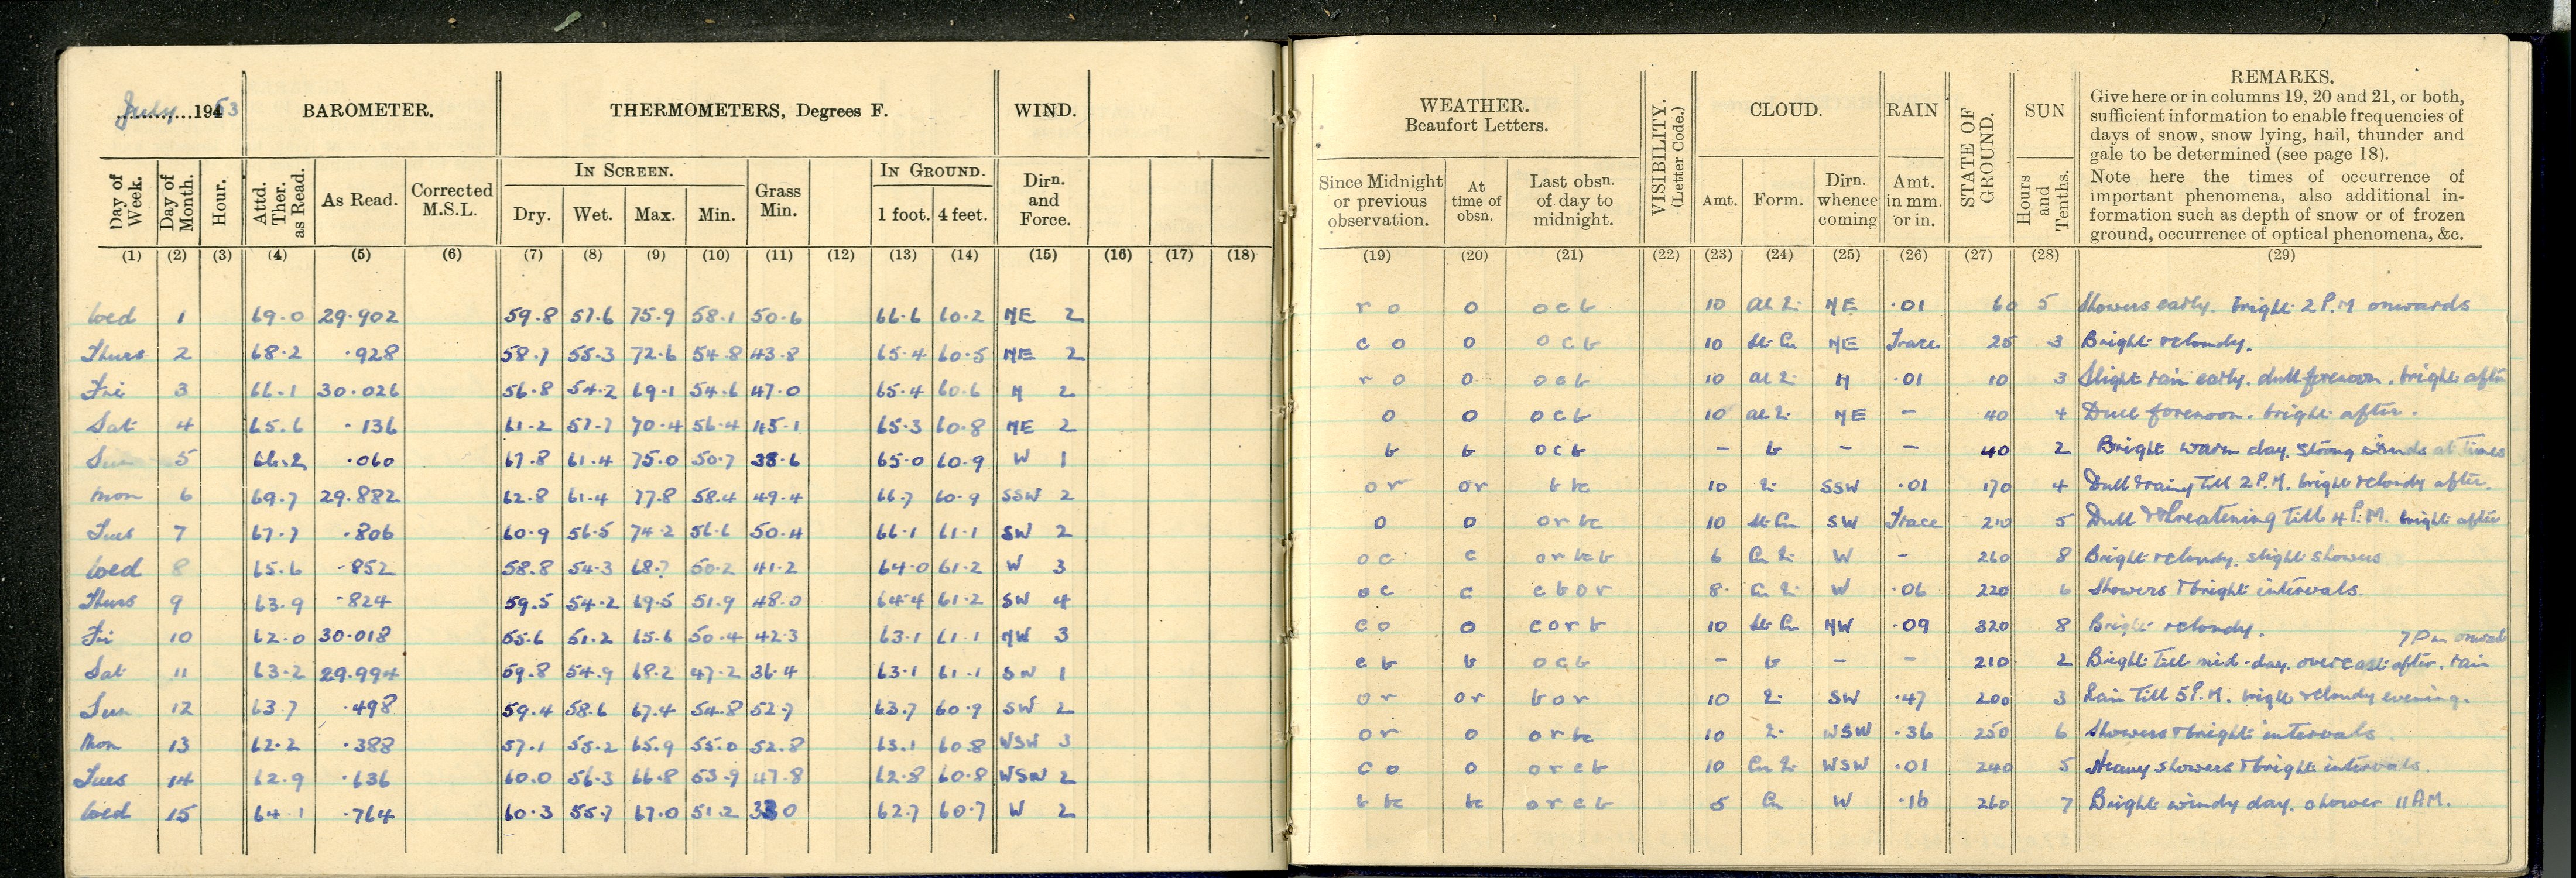 July 1953 BAROMETER. THERMOMETERS, Degrees F. WIND.
Day of Week. Day of Month. Hour. Attd. Ther. as Read. As Read. Corrected M.S.L. IN SCREEN. Dry. Wet. Max. Min. Grass Min. IN GROUND. 1 foot. 4 feet. Dirn. and Force.
(1) (2) (3) (4) (5) (6) (7) (8) (9) (10) (11) (12) (13) (14) (15) (16) (17) (18)
Wed 1 69.0 29.902 59.8 57.6 75.9 58.1 50.6 66.6 60.2 NE 2
Thurs 2 68.2 .928 58.7 55.3 72.6 54.8 43.8 65.4 60.5 NE 2
Fri 3 66.1 30.026 56.8 54.2 69.1 54.6 47.0 65.4 60.6 N 2
Sat 4 65.6 .136 61.2 57.7 70.4 56.4 45.1 65.3 60.8 NE 2
Sun 5 66.2 .060 67.8 61.4 75.0 50.7 38.6 65.0 60.9 W 1
Mon 6 69.7 29.882 62.8 61.4 77.8 58.4 49.4 66.7 60.9 SSW 2
Tues 7 67.7 .806 60.9 56.5 74.2 56.6 50.4 66.1 61.1 SW 2
Wed 8 65.6 .852 58.8 54.3 68.7 50.2 41.2 64.0 61.2 W 3
Thurs 9 63.9 .824 59.5 54.2 69.5 51.9 48.0 64.4 61.2 SW 4
Fri 10 62.0 30.018 55.6 51.2 65.6 50.4 42.3 63.1 61.1 NW 3
Sat 11 63.2 29.994 59.8 54.9 68.2 47.2 36.4 63.1 61.1 SW 1
Sun 12 63.7 .498 59.4 58.6 67.4 54.8 52.7 63.7 60.9 SW 2
Mon 13 62.2 .388 57.1 55.2 65.9 55.0 52.8 63.1 60.8 WSW 3
Tues 14 62.9 .636 60.0 56.3 66.8 53.9 47.8 62.8 60.8 WSW 2
Wed 15 64.1 .764 60.3 55.7 67.0 51.2 62.7 60.7 W 2
WEATHER. Beaufort Letters. VISIBILITY. (Letter Code.) CLOUD. RAIN STATE OF GROUND. SUN REMARKS.
Give here or in columns 19, 20 and 21, or both,
sufficient information to enable frequencies of
days of snow, snow lying, hail, thunder and
gale to be determined (see page 18).
Note here the times of occurrence of
important phenomena, also additional in-
formation such as depth of snow or of frozen
ground, occurrence of optical phenomena, &c.
Since Midnight or previous observation. At time of obsn. Last obsn. of day to midnight. Amt. Form. Dirn. whence coming Amt. in mm. or in. Hours and Tenths.
(19) (20) (21) (22) (23) (24) (25) (26) (27) (28) (29)
r o o o c b 10 NE .01 60 5 Showers early. bright 2 P.M onwards
c o o o c b 10 St Cu NE Trace 25 3 Bright & cloudy.
r o o o c b 10 N .01 10 3 Slight rain early. dull forenoon. bright after
o o o c b 10 NE – 40 4 Dull forenoon. bright after.
b b o c b – b – – 40 2 Bright warm day. Strong winds at times
o r o r b bc 10 SSW .01 170 4 Dull & rainy till 2 P.M. bright & cloudy after.
o o o r bc 10 St Cu SW Trace 210 5 Dull & threatening till 4 P.M. bright after
o c c o r bc b 6 W – 260 8 Bright & cloudy. slight showers
o c c c b o r 8 W .06 220 6 Showers & bright intervals.
c o o c o r b 10 St Cu NW .09 320 8 Bright & cloudy.
c b b o c b – b – – 210 2 Bright till mid-day. overcast after. rain 7 Pm onwards
o r o r b o r 10 SW .47 200 3 Rain till 5 P.M. bright & cloudy evening.
o r o o r bc 10 WSW .36 250 6 Showers & bright intervals.
c o o o r c b 10 WSW .01 240 5 Heavy showers & bright intervals.
b bc bc o r c b 5 Cu W .16 260 7 Bright windy day. shower 11 AM.